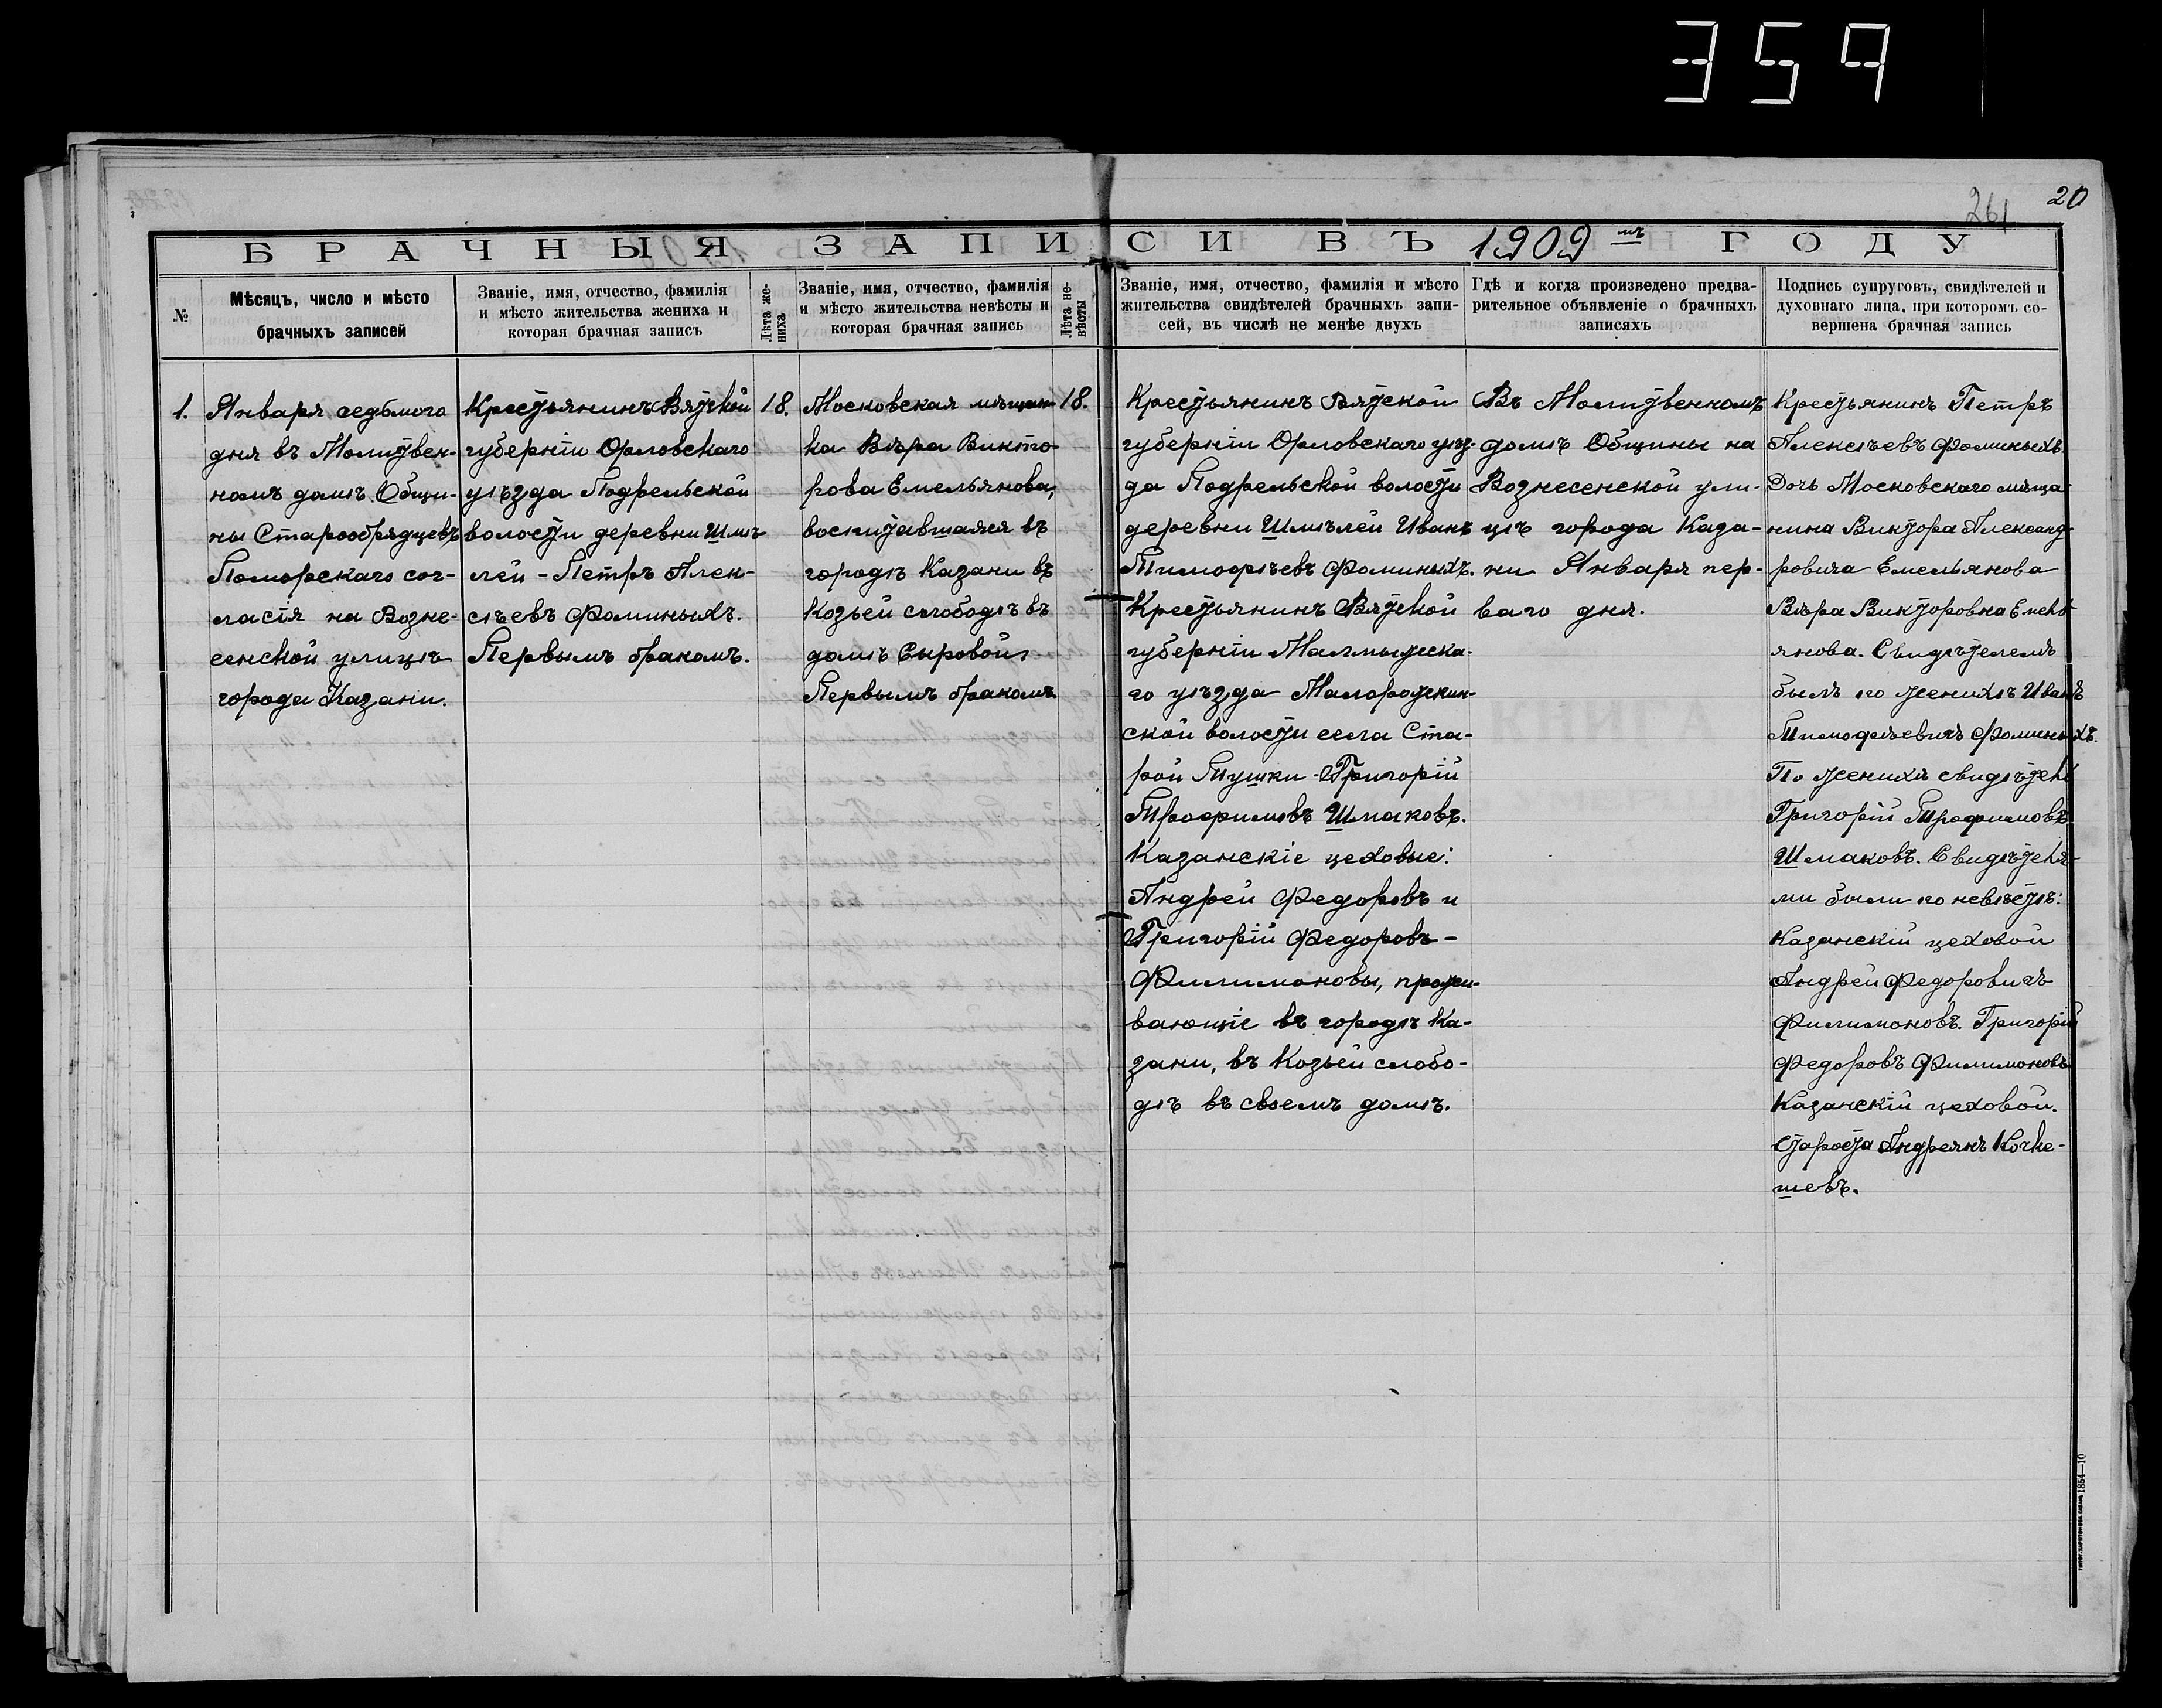 359
261
20
БРАЧНЫЯ ЗАПИСИ ВЪ 1909 мъ ГОДУ
№
Мѣсяцъ, число и мѣсто
брачныхъ записей
Званіе, имя, отчество, фамилія
и мѣсто жительства жениха и
которая брачная запись
Лѣта же-
ниха
Званіе, имя, отчество, фамилія
и мѣсто жительства невѣсты и
которая брачная запись
Лѣта не-
вѣсты
Званіе, имя, отчество, фамилія и мѣсто
жительства свидѣтелей брачныхъ запи-
сей, въ числѣ не менѣе двухъ
Гдѣ и когда произведено предва-
рительное объявленіе о брачныхъ
записяхъ
Подпись супруговъ, свидѣтелей и
духовнаго лица, при которомъ со-
вершена брачная запись
1.
Января седьмого
дня въ Молитвен-
номъ домѣ Общи-
ны Старообрядцевъ
Поморскаго сог-
ласія на Возне-
сенской улицѣ
города Казани.
Крестьянинъ Вятской
губерніи Орловскаго
уѣзда Подрельской
волости деревни Шмѣ-
лей - Петръ Алек-
сѣевъ Фоминыхъ.
Первымъ бракомъ.
18.
Московская мѣщан-
ка Вѣра Викто-
рова Емельянова,
воспитавшаяся въ
городѣ Казани въ
Козьей слободѣ въ
домѣ Сыровой,
Первымъ бракомъ.
18.
Крестьянинъ Вятской
губерніи Орловскаго уѣз-
да Подрельской волости
деревни Шмѣлей Иванъ
Тимофѣевъ Фоминыхъ.
Крестьянинъ Вятской
губерніи Малмыжска-
го уѣзда Малорожкин-
ской волости села Ста-
рой Тушки - Григорій
Трофимовъ Шмаковъ.
Казанскіе цеховые:
Андрей Федоровъ и
Григорій Федоровъ -
Филимоновы, прожи-
вающіе въ городѣ Ка-
зани, въ Козьей слобо-
дѣ въ своемъ домѣ.
Въ Молитвенномъ
домѣ Общины на
Вознесенской ули-
цѣ города Каза-
ни Января пер-
ваго дня.
Крестьянинъ Петръ
Алексѣевъ Фоминыхъ.
Дочь Московскаго мѣща-
нина Виктора Александ-
ровича Емельянова
Вѣра Викторовна Емель-
янова. Свидѣтелемъ
былъ по женихѣ Иванъ
Тимофѣевичъ Фоминыхъ.
По женихѣ свидѣтель
Григорій Трофимовъ
Шмаковъ. Свидѣтеля-
ми были по невѣстѣ:
Казанскій цеховой
Андрей Федоровичъ
Филимоновъ. Григорій
Федоровъ Филимоновъ
Казанскій цеховой.
Староста Андреянъ Кочне-
шевъ.
1854—10